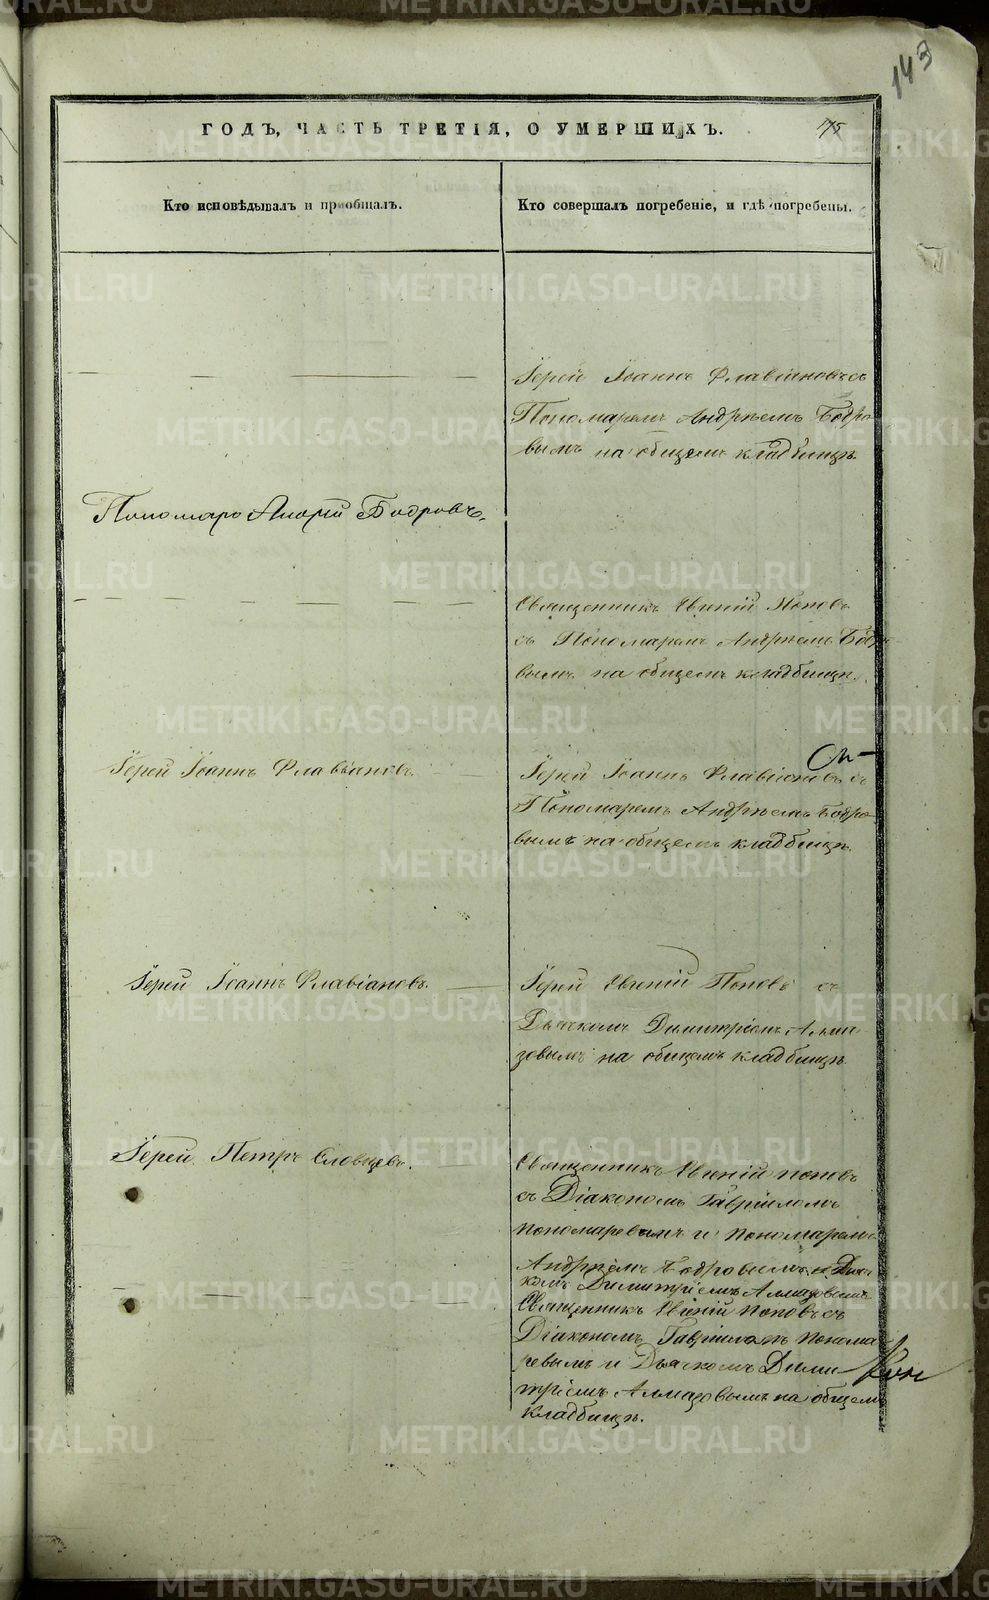 143
ГОДЪ, ЧАСТЬ ТРЕТІЯ, О УМЕРШИХЪ.
175
Кто исповѣдывалъ и пріобщалъ.
Кто совершалъ погребеніе, и гдѣ погребены.
Іерей Іоаннъ Флавіановъ съ
Пономаремъ Андрѣемъ Бодро-
вымъ на общемъ кладбищѣ.
Пономарь Андрей Бодровъ.
Священникъ Евгеній Поповъ
съ Пономаремъ Андрѣемъ Бодро-
вымъ на общемъ кладбищѣ.
Іерей Іоаннъ Флавіановъ.
Іерей Іоаннъ Флавіановъ съ
Пономаремъ Андрѣемъ Бодро-
вымъ на общемъ кладбищѣ.
Іерей Іоаннъ Флавіановъ.
Іерей Евгеній Поповъ съ
Дьячкомъ Димитріемъ Алма-
зовымъ на общемъ кладбищѣ.
Іерей Петръ Словцевъ.
Священникъ Евгеній Поповъ
съ Діакономъ Гавріиломъ
Пономаревымъ и Пономаремъ
Андрѣемъ Бодровымъ и Дьяч-
комъ Димитріемъ Алмазовымъ
Священникъ Евгеній Поповъ съ
Діакономъ Гавріиломъ Понома-
ревымъ и Дьячкомъ Дими-
тріемъ Алмазовымъ на общемъ
кладбищѣ.
METRIKI.GASO-URAL.RU